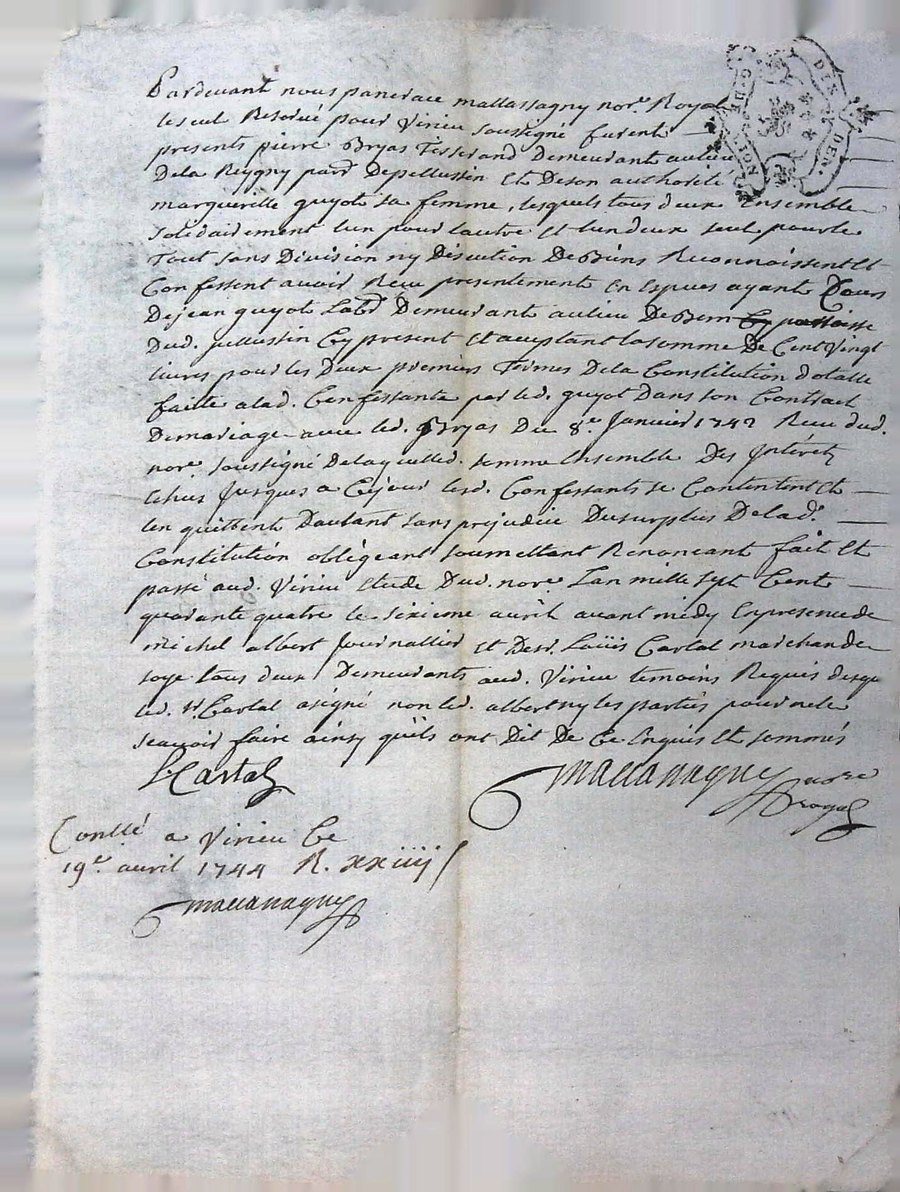 Pardevant nous pancrace mallassagny nore. Royal
le seul Reservé pour Virieu soussigné furent
presents pierre Bryas Tisserand Demeurant au lieu
De la Reygny parr. De pellussin Et De son authorité
margueritte guyot sa femme, lesquels tous deux Ensemble
solidairement lun pour lautre et lun deux seul pour le
Tout sans Division ny Discution De Biens Reconnoissent Et
Confessent avoir Receu presentement en Especes ayant Cours
De jean guyot Labr. Demeurant au lieu De
Dud. pellussin Cy present Et acceptant la somme De Cent Vingt
livres pour les Deux premiers Termes De la Constitution Dotalle
faitte a lad. Confessante par led. guyot Dans son Contract
De mariage avec led. Bryas Du 8e. Janvier 1742 Receu dud.
nore. soussigné De laquelle d. somme Ensemble Des Intérets
Echus Jusques a Cejour lesd. Confessants se Contentent Et
len quittent Dautant sans prejudice Du surplus De lad.
Constitution obligeant soumettant Renonceant fait Et
passé aud. Virieu Etude Dud. nore. Lan mille sept Cents
quarante quatre le sixieme avril avant midy En presence de
michel albert Journallier et De sr. Loüis Cartal marchand de
soye tous deux Demeurants aud. Virieu temoins Requis desqu
led. sr. Cartal a signé non led. albert ny les parties pour ne le
sçavoir faire ainsy qüils ont Dit De Ce Enquis Et sommés
L Cartal
mallassagny nore
royal
Conllé a Virieu Ce
19e. avril 1744 R. xxiiij s
mallassagny